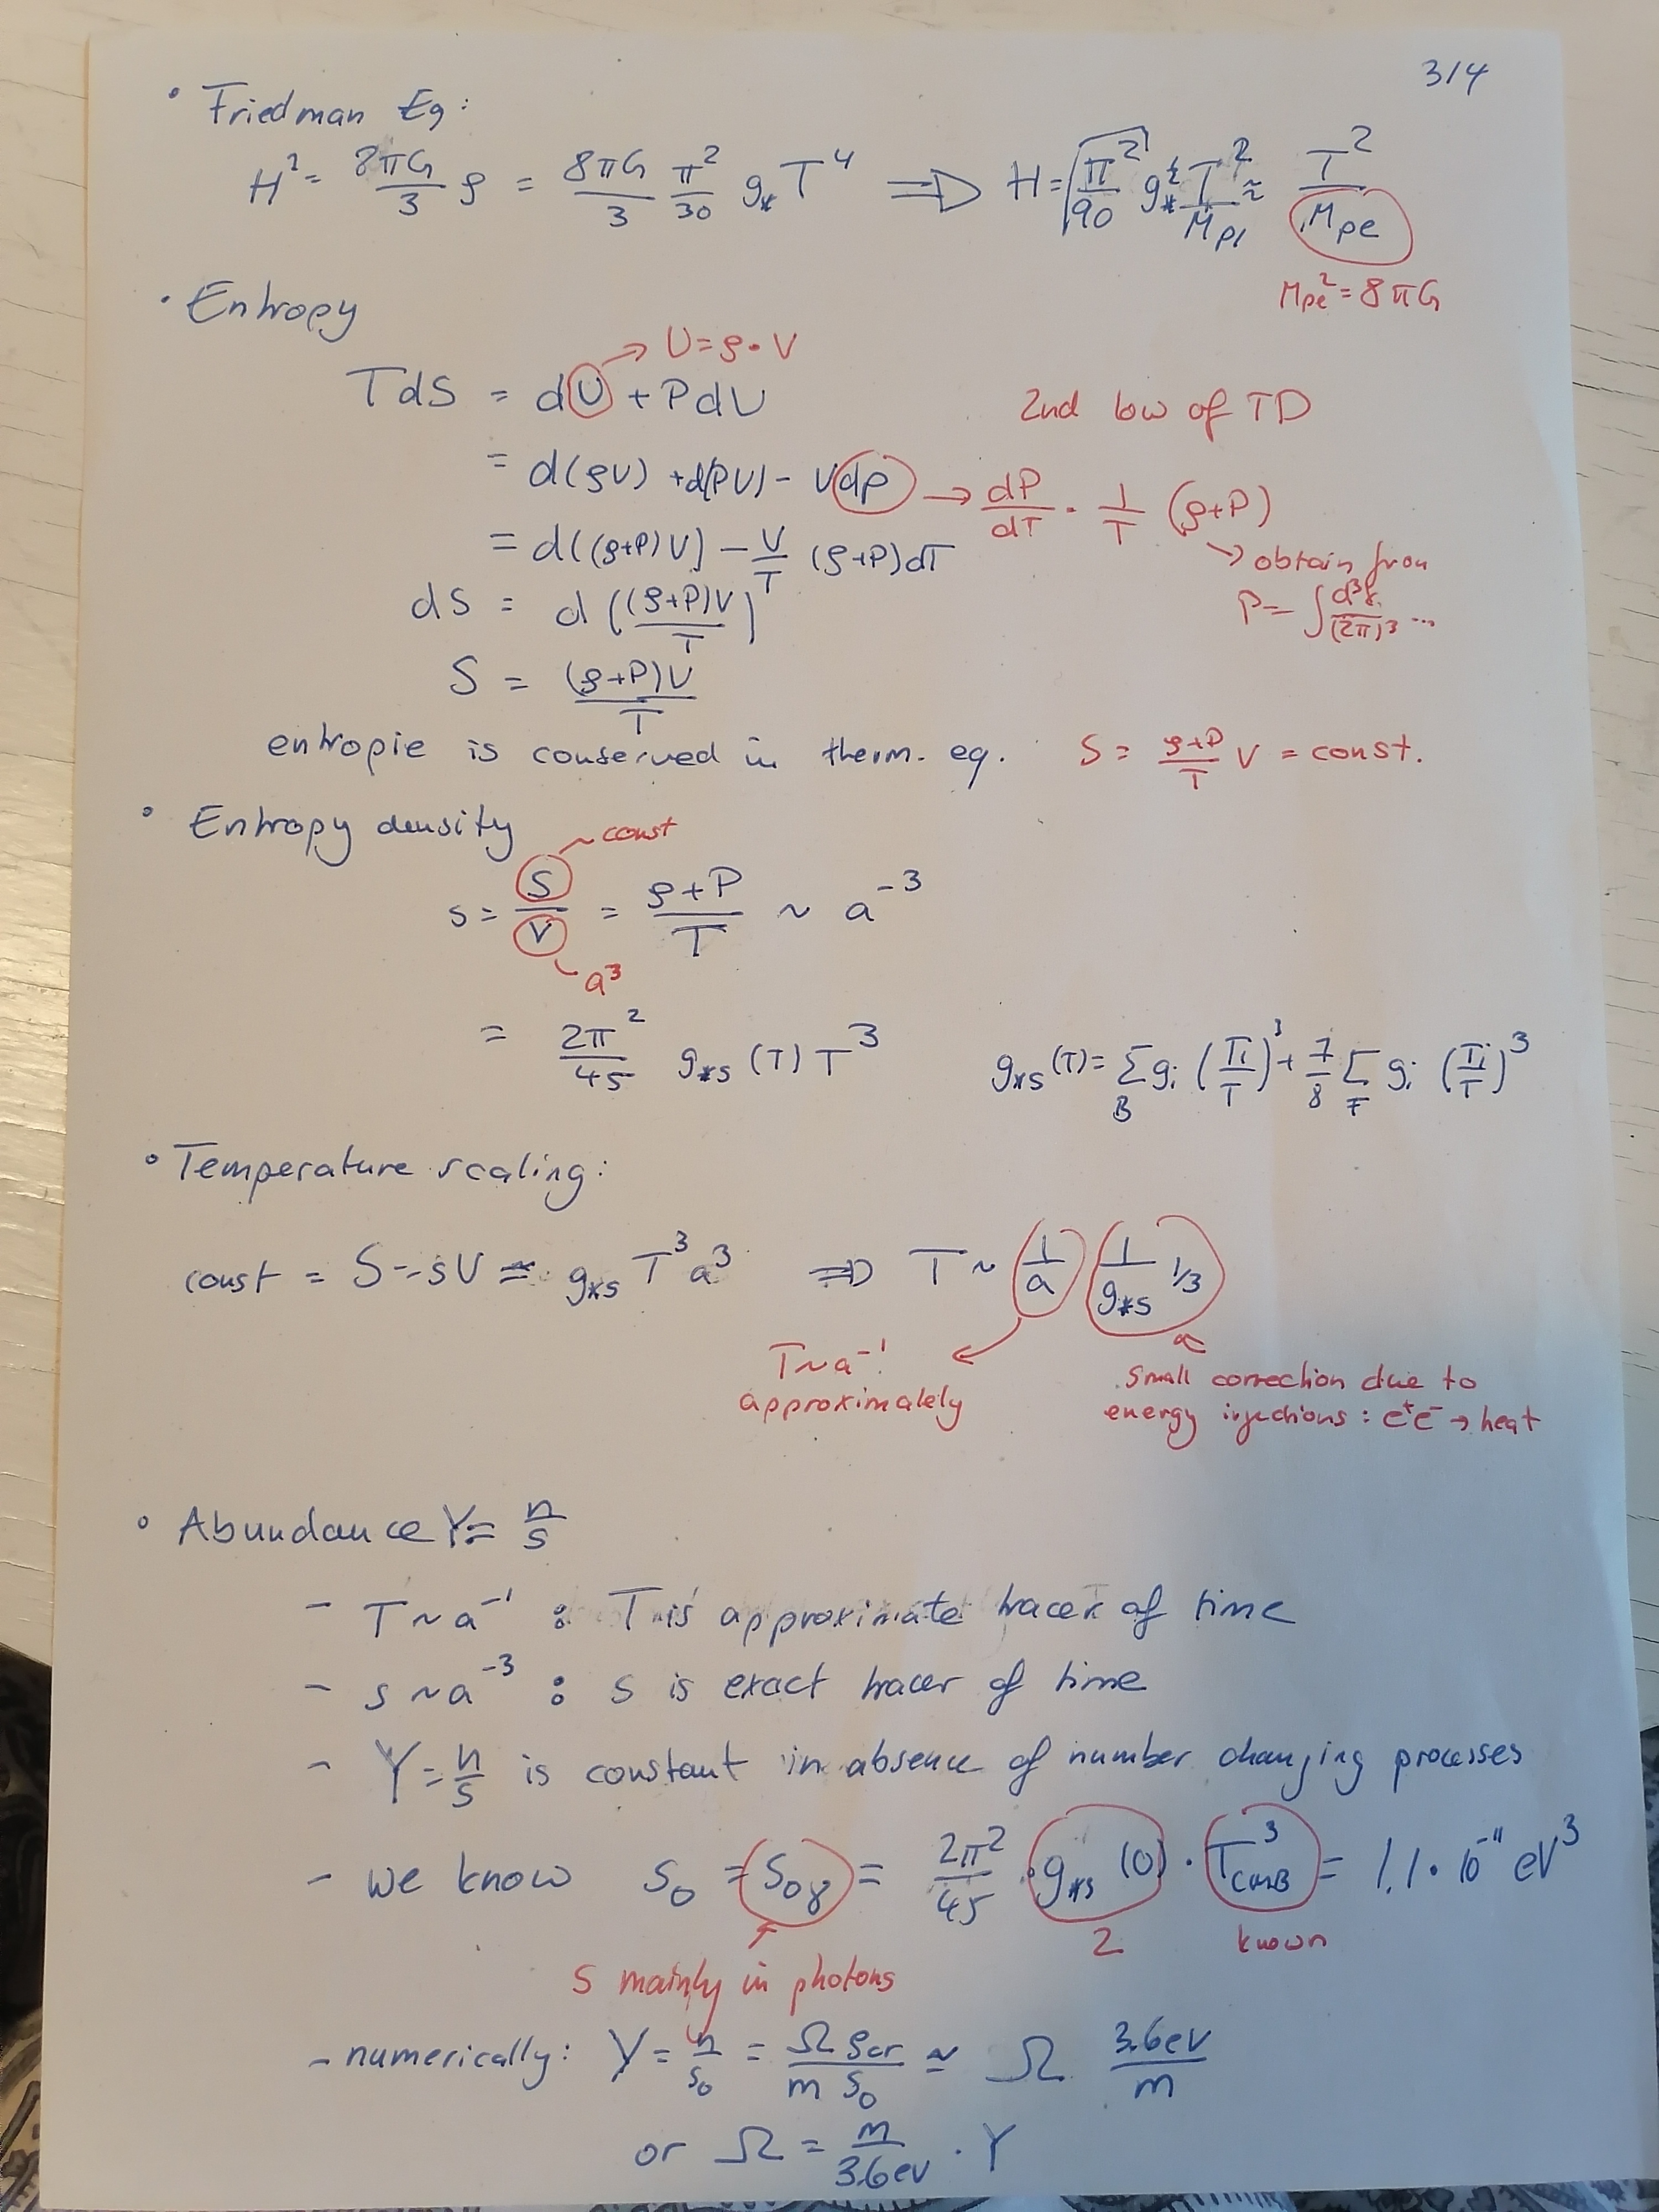 3/4
• Friedman Eq:
H² = 8πG/3 ρ = 8πG/3 π²/30 g* T⁴ ⟹ H = √(π²/90) g*^½ T²/Mpl ≈ T²/Mpl
Mpl² = 8πG
• Entropy
→ U = ρ·V
TdS = dU + PdV
2nd low of TD
= d(ρV) + d(PV) - Vdp → dP/dT · 1/T (ρ+P)
= d((ρ+P)V) - V/T (ρ+P)dT
↘ obtain from
dS = d((ρ+P)V/T)
P = ∫ d³q/(2π)³ ...
S = (ρ+P)V/T
entropie is conserved in therm. eq. S = ρ+P/T V = const.
• Entropy density
~ const
s = S/V = ρ+P/T ~ a⁻³
a³
= 2π²/45 g*s (T) T³ g*s (T) = Σ_B gi (Ti/T)³ + 7/8 Σ_F gi (Ti/T)³
• Temperature scaling:
const = S = sV = g*s T³ a³ ⟹ T ~ 1/a 1/g*s^1/3
T ~ a⁻¹
approximately
small correction due to
energy injections: e⁺e⁻ → heat
• Abundance Y = n/s
- T ~ a⁻¹ : T is approximate tracer of time
- s ~ a⁻³ : s is exact tracer of time
- Y = n/s is constant in absence of number changing processes
- we know s₀ = s₀γ = 2π²/45 · g*s (0) · T³CMB = 1.1 · 10⁻¹¹ eV³
2 known
S mainly in photons
- numerically: Y = n/s₀ = Ω ρcr/m s₀ ≃ Ω 3.6eV/m
or Ω = m/3.6eV · Y